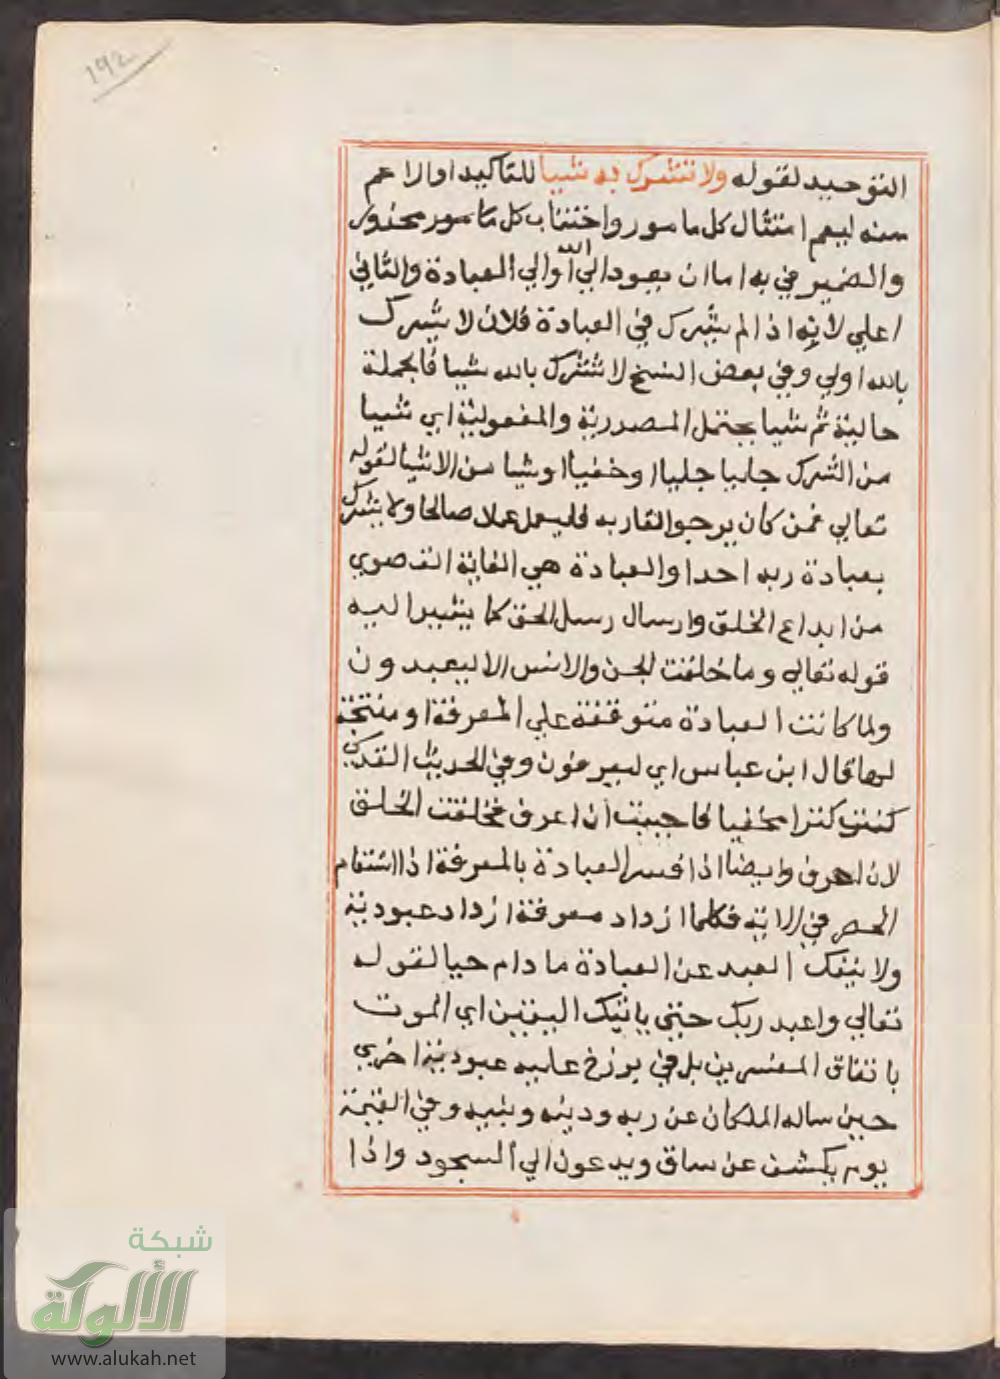 ١٩٢
التوحيد لقوله ولا تشرك به شيا للتاكيد او الاعم
منه ليعم امتثال كل مامور واجتناب كل مامور محذور
والضمير في به اما ان يعود الي الله او الي العبادة والثاني
اعلي لانه اذا لم يشرك في العبادة فلان لا يشرك
بالله اولي وفي بعض النسخ لا تشرك بالله شيا فالجملة
حالية ثم شيا يحتمل المصدرية والمفعولية اي شيا
من الشرك جليا او خفيا او شيا من الاشيا لقوله
تعالي فمن كان يرجو لقا ربه فليعمل عملا صالحا ولا يشرك
بعبادة ربه احدا والعبادة هي الغاية القصوي
من ابداع الخلق وارسال رسل الحق كما يشير اليه
قوله تعالي وما خلقت الجن والانس الا ليعبدون
ولما كانت العبادة متوقفة علي المعرفة او منتجة
لها قال ابن عباس اي ليعرفون وفي الحديث القدسي
كنت كنزا مخفيا فاحببت ان اعرف فخلقت الخلق
لان اعرف وايضا اذا فسر العبادة بالمعرفة اذا استقام
الحصر في الاية فكلما ازداد معرفة ازداد عبودية
ولا ينفك العبد عن العبادة ما دام حيا لقوله
تعالي واعبد ربك حتي ياتيك اليقين اي الموت
باتفاق المفسرين بل في برزخ عليه عبودية اخري
حين ساله الملكان عن ربه ودينه ونبيه وفي القيمة
يوم يكشف عن ساق ويدعون الي السجود واذا
شبكة
الألوكة
www.alukah.net